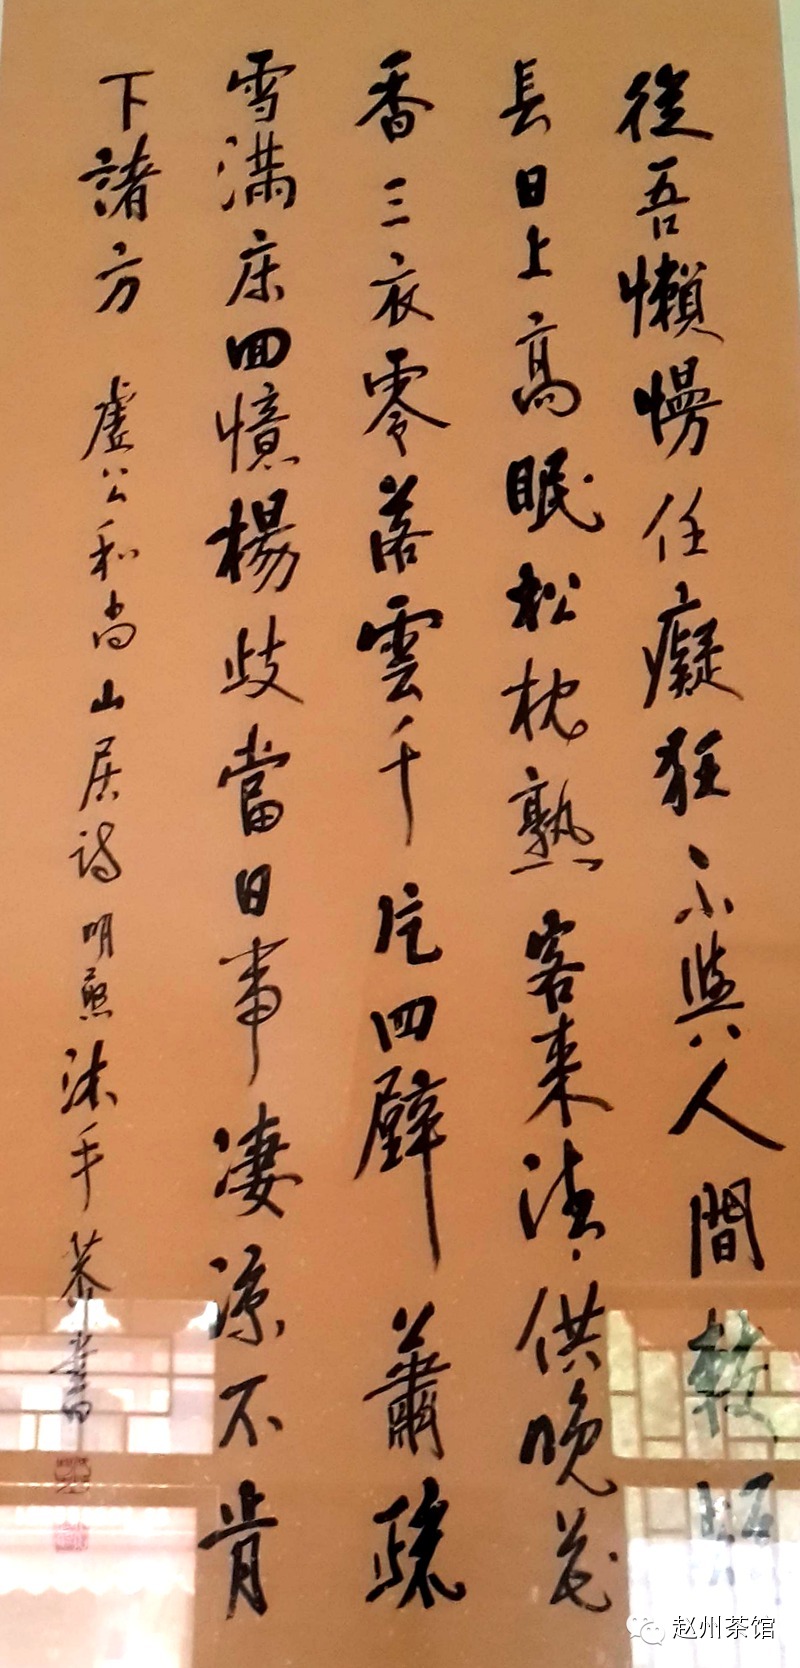 從吾懶慢任癡狂不與人間較短
長日上高眠松枕熟客來清供晚花
香三衣零落雲千片四壁蕭疏
雪滿床囬憶楊歧當日事淒涼不肯
下諸方 虛公和尚山居詩 明沐手恭書
赵州茶馆